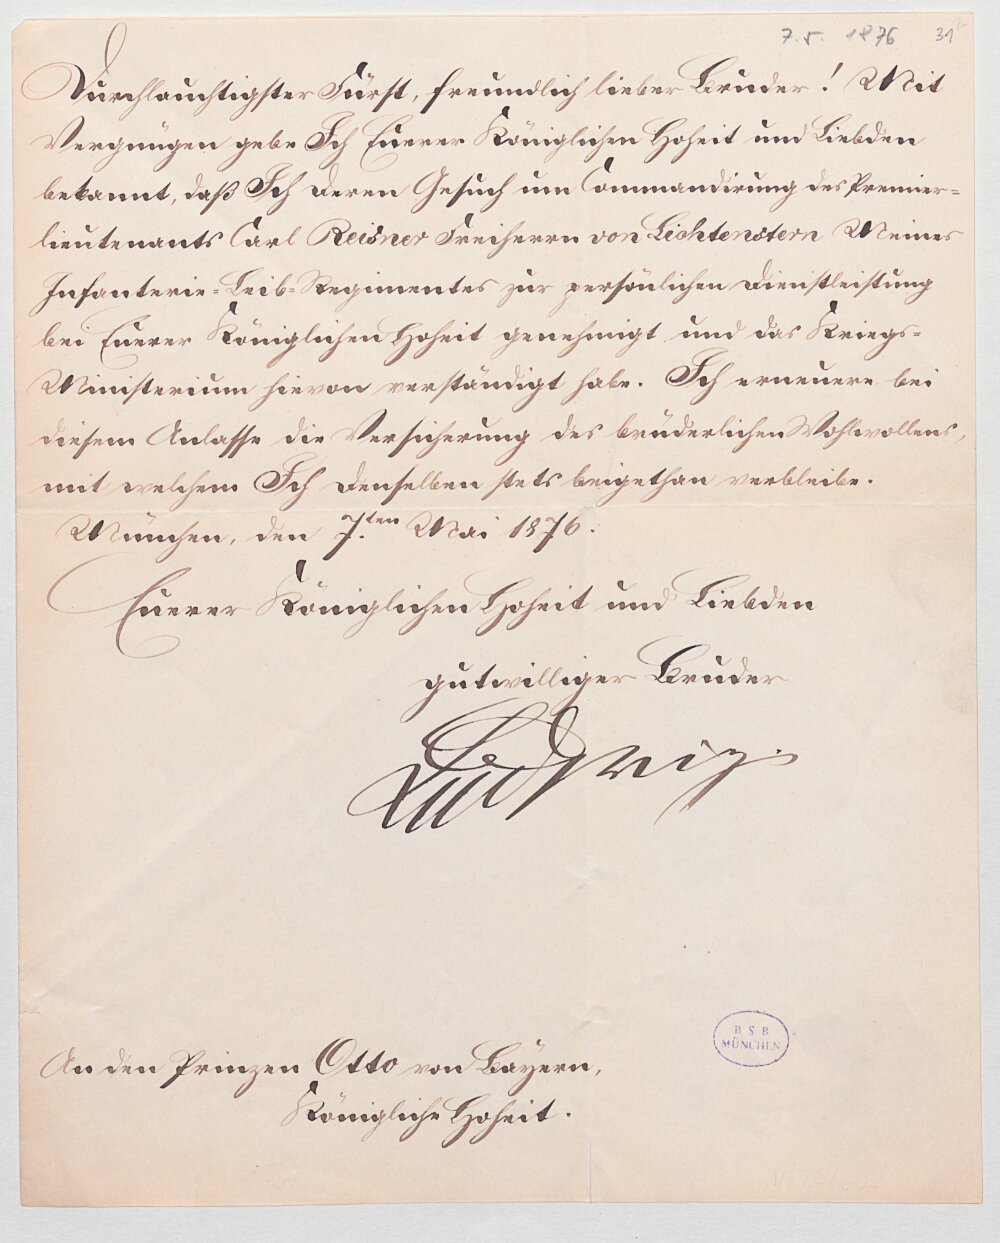 7. 5. 1876 31
Durchlauchtigster Fürst, freundlich lieber Bruder! Mit
Vergnügen gebe Ich Euerer Königlichen Hoheit und Liebden
bekannt, daß Ich Deren Gesuch um Commandirung des Premier=
lieutenants Carl Reisner Freiherrn von Lichtenstern Meines
Infanterie=Leib=Regimentes zur persönlichen Dienstleistung
bei Euerer Königlichen Hoheit genehmigt und das Kriegs=
Ministerium hievon verständigt habe. Ich erneuere bei
diesem Anlasse die Versicherung des brüderlichen Wohlwollens,
mit welchem Ich Denselben stets beigethan verbleibe.
München, den 7.ten Mai 1876.
Euerer Königlichen Hoheit und Liebden
gutwilliger Bruder
Ludwig.
B S B
MÜNCHEN
An den Prinzen Otto von Bayern,
Königliche Hoheit.